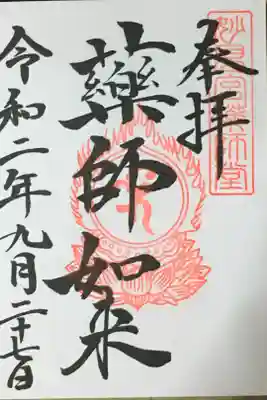 奉拝
薬師如来
令和二年九月二十七日